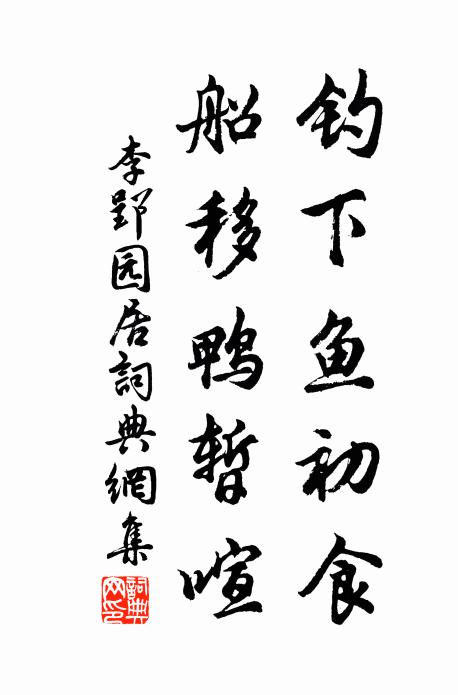 钓下鱼初食
船移鸭暂喧
李郢园居詞典網集
詞典
网印